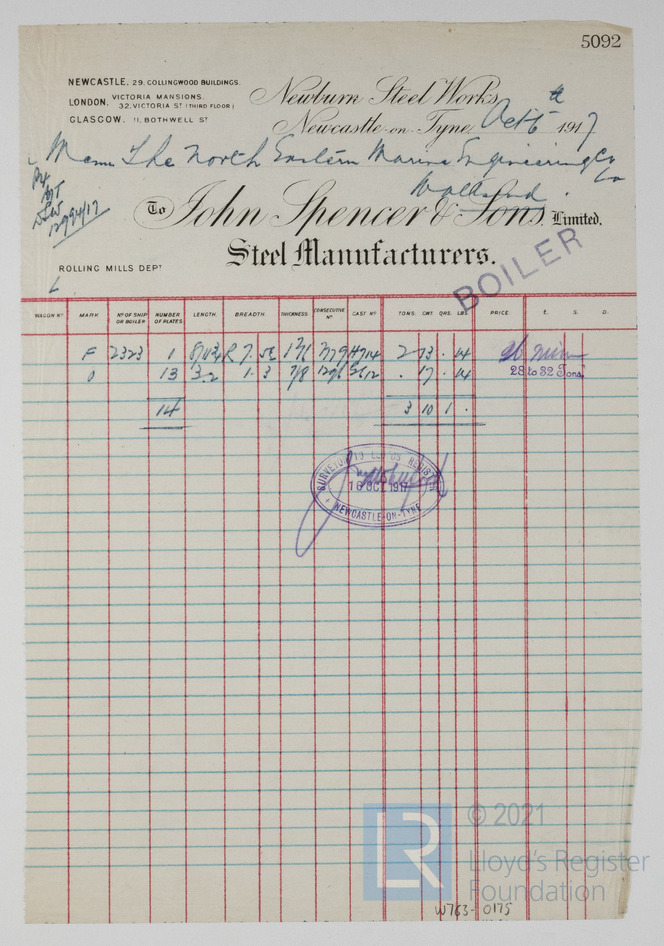 5092
NEWCASTLE. 29. COLLINGWOOD BUILDINGS.
LONDON. VICTORIA MANSIONS.
32. VICTORIA ST (THIRD FLOOR)
GLASGOW. 11. BOTHWELL ST
Newburn Steel Works
Newcastle-on-Tyne, Oct 6th 1917
The North Eastern Marine Engineering Co
Wallsend
To John Spencer & Sons, Limited.
Steel Manufacturers.
ROLLING MILLS DEPT
BOILER
WAGON No MARK No OF SHIP OR BOILER NUMBER OF PLATES. LENGTH. BREADTH THICKNESS CONSECUTIVE No CAST No TONS. CWT. QRS. LBS PRICE £. S. D.
F 2323 1 2 13 . 14
28 to 32 Tons.
13 3.2 1.3 7/8 . 17 . 14
14 3 10 1 .
SURVEYOR TO LLOYDS REGISTER
16 OCT 1917
NEWCASTLE-ON-TYNE
© 2021
LR
Lloyd's Register
Foundation
W763-0175